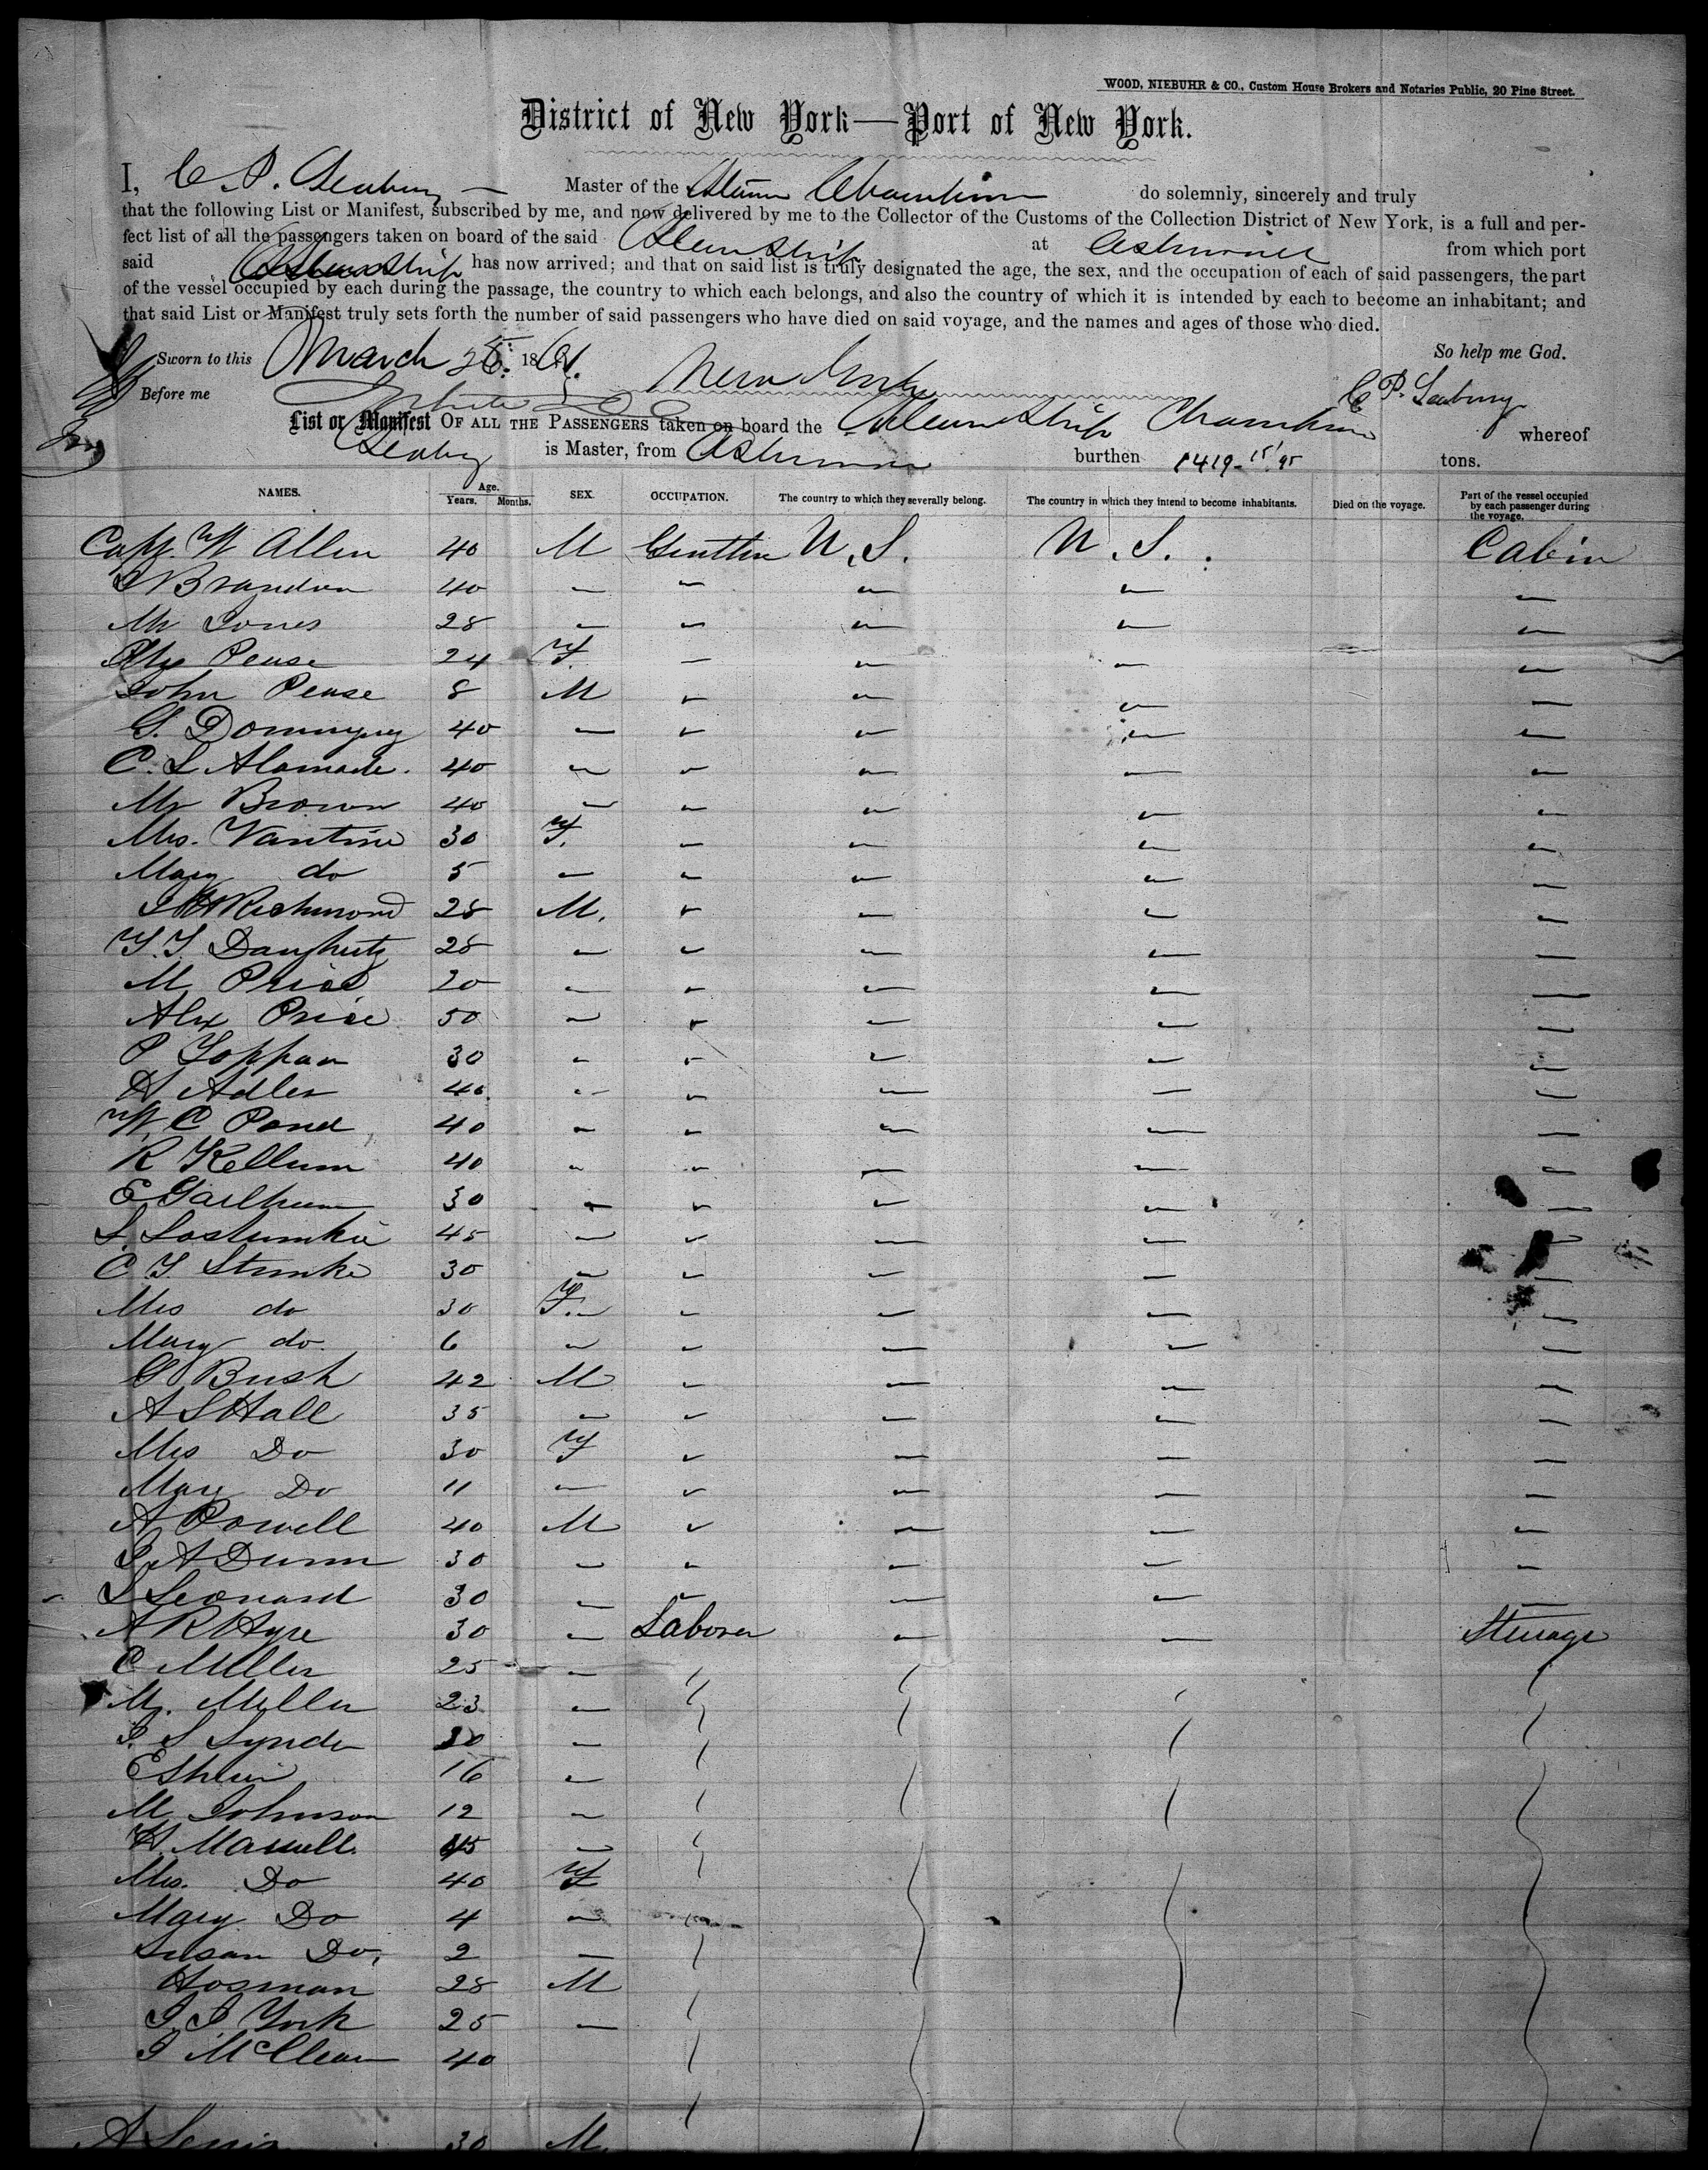 WOOD, NIEBUHR & CO., Custom House Brokers and Notaries Public, 20 Pine Street.
District of New York—Port of New York.
I, C P. Seabury — Master of the Steam Champion do solemnly, sincerely and truly
that the following List or Manifest, subscribed by me, and now delivered by me to the Collector of the Customs of the Collection District of New York, is a full and per-
fect list of all the passengers taken on board of the said Steam Ship at Aspinwall from which port
said Steam Ship has now arrived; and that on said list is truly designated the age, the sex, and the occupation of each of said passengers, the part
of the vessel occupied by each during the passage, the country to which each belongs, and also the country of which it is intended by each to become an inhabitant; and
that said List or Manifest truly sets forth the number of said passengers who have died on said voyage, and the names and ages of those who died.
So help me God.
Sworn to this March 26. 1861.
Before me New York C P. Seabury
List or Manifest OF ALL THE PASSENGERS taken on board the Steam Ship Champion whereof
Seabury is Master, from Aspinwall burthen 1419 15/95 tons.
NAMES. Age. Years. Months. SEX. OCCUPATION. The country to which they severally belong. The country in which they intend to become inhabitants. Died on the voyage. Part of the vessel occupied by each passenger during the voyage.
Capt. W Allen 40 M U.S. U.S. Cabin
Brandon 40 — — — — —
Mr Jones 28 — — — — —
Pease 24 F. — — — —
John Pease 8 M — — — —
G. Dominguez 40 — — — — —
C. L Alamade. 40 — — — — —
Mr Brown 40 — — — — —
Mrs. Vantine 30 F. — — — —
Mary do 5 — — — — —
Richmond 28 M. — — — —
28 — — — — —
M Price 20 — — — — —
Alex Price 50 — — — — —
P Toppan 30 — — — — —
A Adler 40. — — — — —
W C Pond 40 — — — — —
R Kellum 40 — — — — —
E 30 — — — — —
45 — — — — —
30 — — — — —
Mrs do 30 F. — — — —
Mary do. 6 — — — — —
G Bush 42 M — — — —
A S Hall 35 — — — — —
Mrs Do 30 F — — — —
Mary Do 11 — — — — —
A Powell 40 M — — — —
A Dunn 30 — — — — —
L Leonard 30 — — — — —
A R 30 — Laborer — — Steerage
C Miller 25 —
M. Miller 23 —
30 —
E 16 —
M Johnson 12 —
H. 45 —
Mrs. Do 40 F
Mary Do 4 —
Susan Do, 2 —
Hosman 28 M
York 25 —
McClean 40
A 30 M